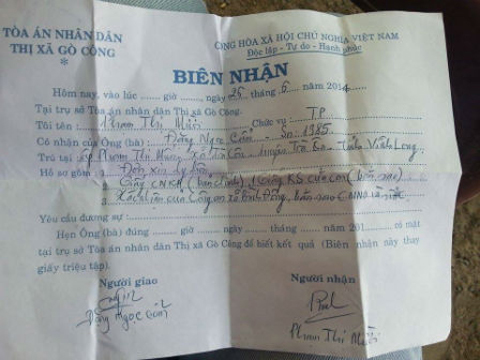 TÒA ÁN NHÂN DÂN
THỊ XÃ GÒ CÔNG
*
CỘNG HÒA XÃ HỘI CHỦ NGHĨA VIỆT NAM
Độc lập - Tự do - Hạnh phúc
BIÊN NHẬN
Hôm nay, vào lúc ........ giờ ......, ngày 25 tháng 6 năm 2014
Tại trụ sở Tòa án nhân dân Thị xã Gò Công.
Tôi tên : Phạm Thị Chức vụ : T.P
Có nhận của Ông (bà) : Đặng Ngọc - sn: 1985.
Trú tại : Trà - Tỉnh Vĩnh Long.
Hồ sơ gồm : - Đơn xin ly hôn
Giấy CNKH (bản chính), 1 Giấy KS của con (bản sao)
của Công an xã Bình Đông, bản sao CMND
Yêu cầu đương sự :
Hẹn Ông (bà) đúng ...... giờ, ngày ...... tháng ...... năm 201.... có mặt
tại trụ sở Tòa án nhân dân Thị xã Gò Công để biết kết quả (Biên nhận này thay
giấy triệu tập).
Người giao
Người nhận
Đặng Ngọc
Phạm Thị